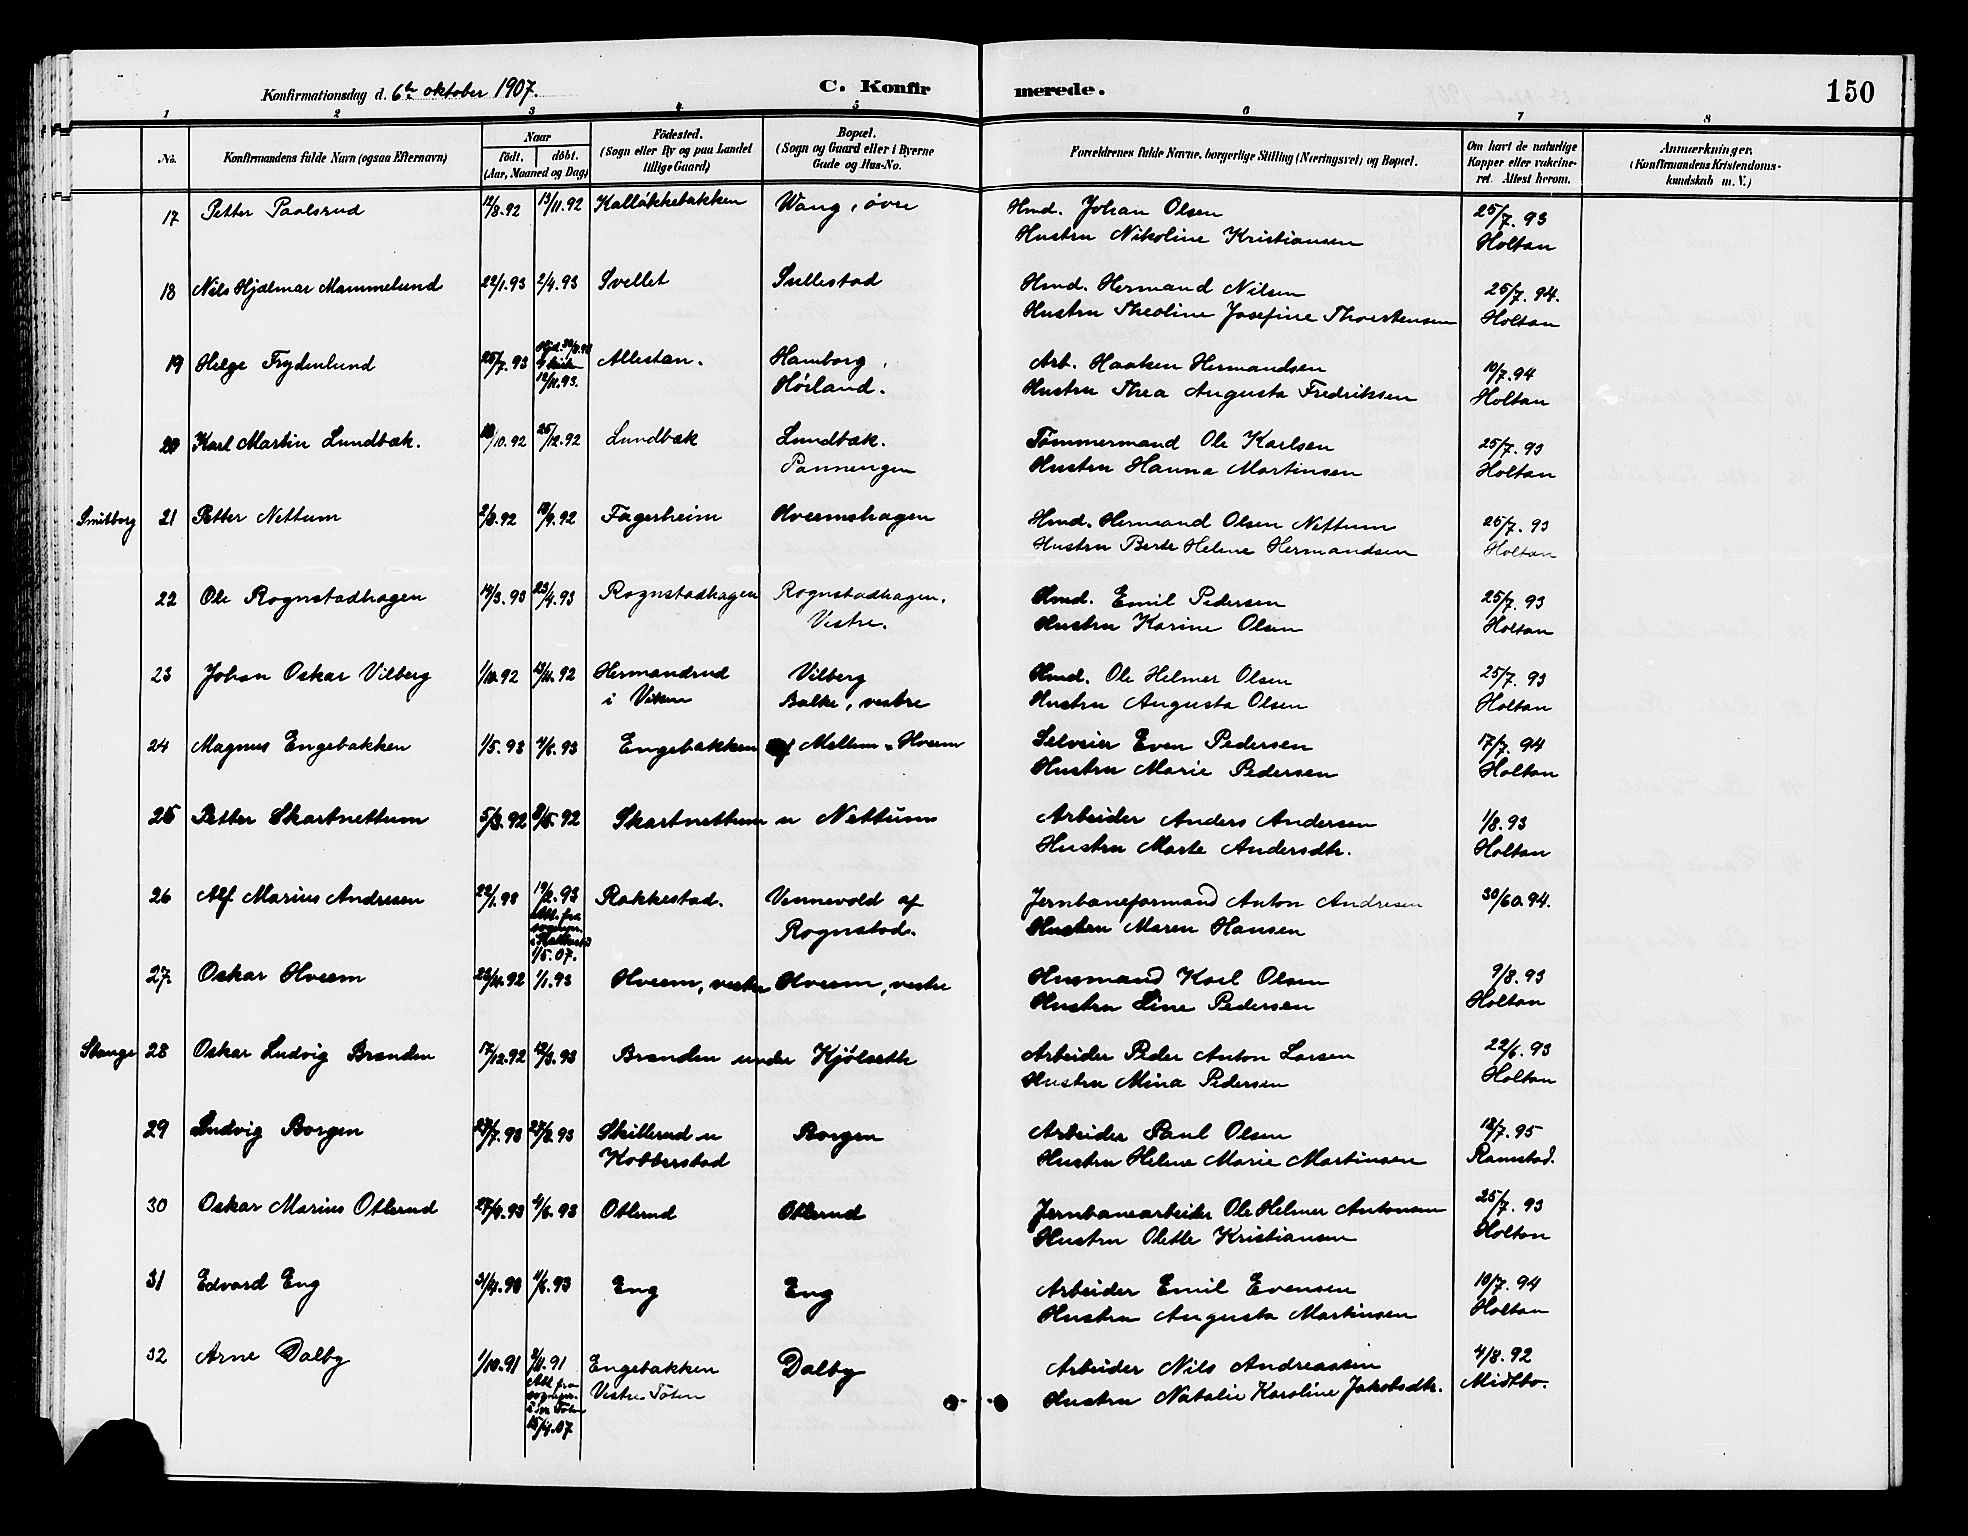 Konfirmationsdag d. 6te oktober 1907.
C. Konfirmerede.
150
1 2 3 4 5 6 7 8
No. Konfirmandens fulde Navn (ogsaa Efternavn)
Naar födt. döbt. (Aar, Maaned og Dag)
Födested. (Sogn eller By og paa Landet tillige Gaard)
Bopæl. (Sogn og Gaard eller i Byerne Gade og Hus-No.
Forældrenes fulde Navne, borgerlige Stilling (Næringsvei) og Bopæl.
Om havt de naturlige Kopper eller vakcineret. Attest herom.
Anmærkninger. (Konfirmandens Kristendomskundskab m. V.)
17 Petter Paalsrud 12/8.92 13/11.92 Kalløkkebakken Wang, øvre Hmd. Johan Olsen 25/7.93
Hustru Nikoline Kristiansen Holtan
18 Nils Hjalmar Mammelund 22/1.93 2/4.93 Svellet Sullestad Hmd. Hermand Nilsen 25/7.94.
Hustru Theoline Josefine Thorstensen Holtan
19 Helge Frydenlund 25/7.93 12/11.93. Allestan. Hamborg, Arb. Haaken Hermandsen 10/7.94
Hörland. Hustru Thea Augusta Fredriksen Holtan
20 Karl Martin Lundbæk. /10.92 25/12.92 Lundbæk Lundbæk. Tömmermand Ole Karlsen 25/7.93
Pannengen Hustru Hanna Martinsen Holtan
Smitborg 21 Petter Nettum 2/8.92 18/9.92 Fagerheim Hvermshagen Hmd. Hermand Olsen Nettum 25/7.93
Hustru Berte Helene Hermandsen Holtan
22 Ole Rognstadhagen 14/3.93 23/4.93 Rognstadhagen Rognstadhagen, Hmd. Emil Pedersen 25/7.93
Vestre. Hustru Karine Olsen Holtan
23 Johan Oskar Vilberg 1/10.92 13/11.92 Hermandrud Vilberg Hmd. Ole Helmer Olsen 25/7.93
i Viken Balke, vestre Hustru Augusta Olsen Holtan
24 Magnus Engebakken 1/5.93 4/6.93 Engebakken af Mellem-Hverm Selveier Even Pedersen 17/7.94
Hustru Marie Pedersen Holtan
25 Petter Skartnettum 5/3.92 8/5.92 Skartnettum u Nettum Arbeider Anders Andersen 1/8.93
Hustru Marte Andersdtr. Holtan
26 Alf Marius Andresen 22/1.93 19/2.93 Rakkestad. Vennevold af Jernbaneformand Anton Andresen 30/60.94.
Att. fra sogner. i 1/5.07. Rognstad. Hustru Maren Hansen
27. Oskar Hverm 23/11.92 1/1.93 Hverm, vestre Hverm, vestre Husmand Karl Olsen 9/8.93
Hustru Line Pedersen Holtan
Stange 28 Oskar Ludvig Brænden 17/12.92 12/3.93 Brænden under Kjölseth Arbeider Peder Anton Larsen 22/6.93
Hustru Mina Pedersen Holtan
29 Ludvig Borgen 23/7.93 27/8.93 Skillerud u Borgen Arbeider Paul Olsen 18/7.95
Kobberstad Hustru Helene Marie Martinsen Ramstad.
30 Oskar Marius Otlerud 27/4.93 4/6.93 Otlerud Otlerud Jernbanearbeider Ole Helmer Antonsen 25/7.93
Hustru Olette Kristiansen Holtan
31 Edvard Eng 3/4.93 4/6.93 Eng Eng Arbeider Emil Evensen 10/7.94
Hustru Augusta Martinsen Holtan
32 Arne Dalby 1/10.91 8/11.91 Engebakken Dalby Arbeider Nils Andreassen 4/8.92
Att. fra sogner. i Toten 15/4.07 Vestre Töten Hustru Natalie Karoline Jakobsdtr. Midtbo.